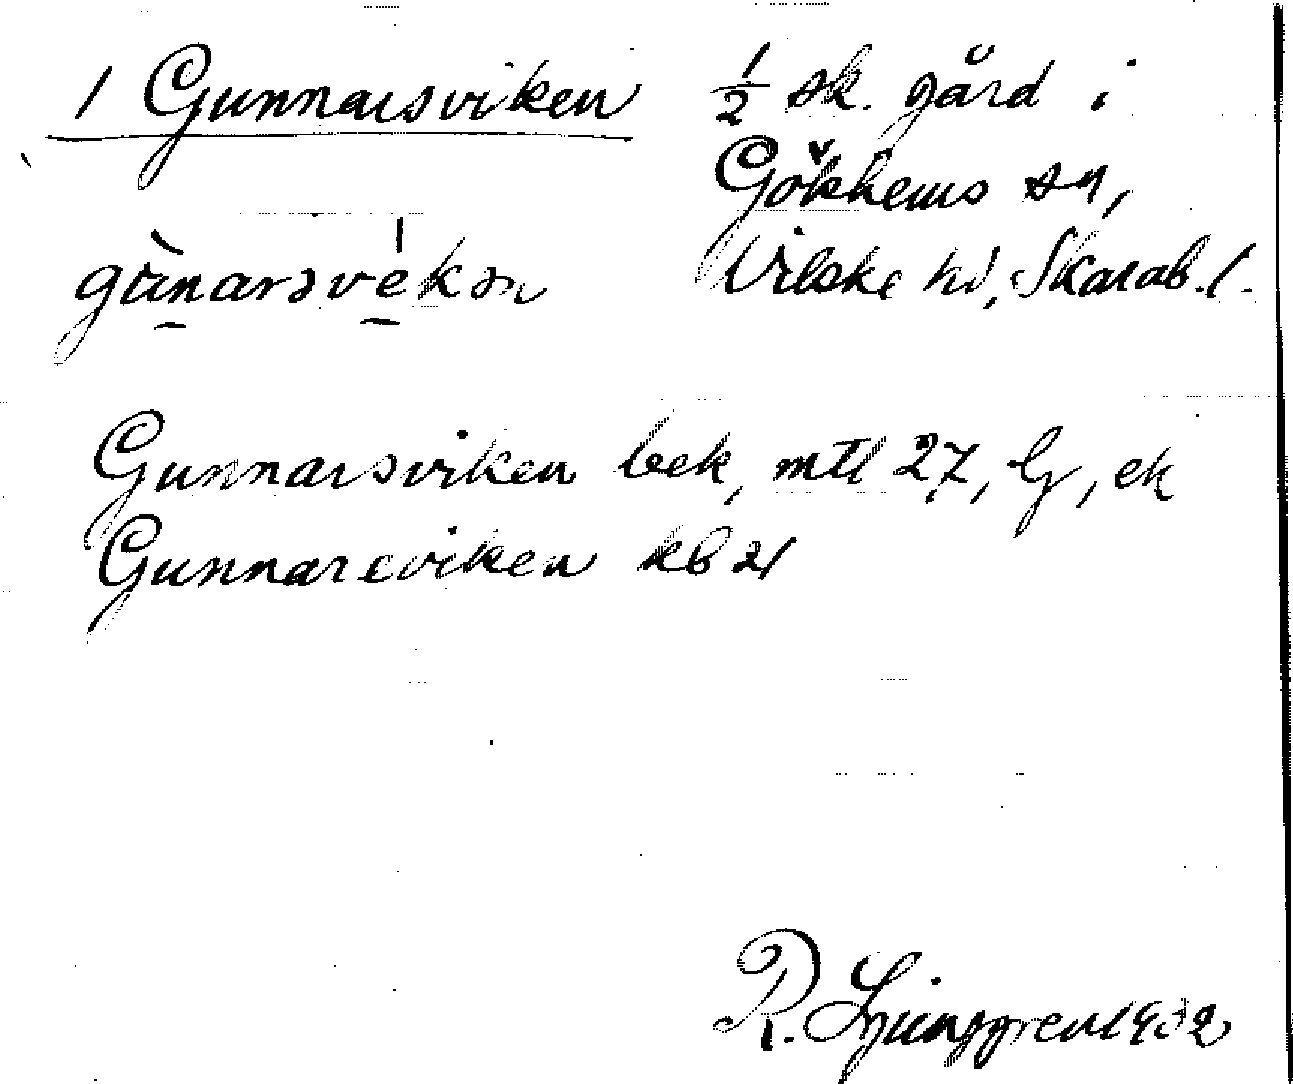 1 Gunnarsviken
1/2 sk. gård i
Gökhems sn,
Vilske hd, Skarab. l.
gùnarsvékən
Gunnarsviken bek, mtl 27, G, ek
Gunnarsviken kb 21
R. Ljunggren 1932